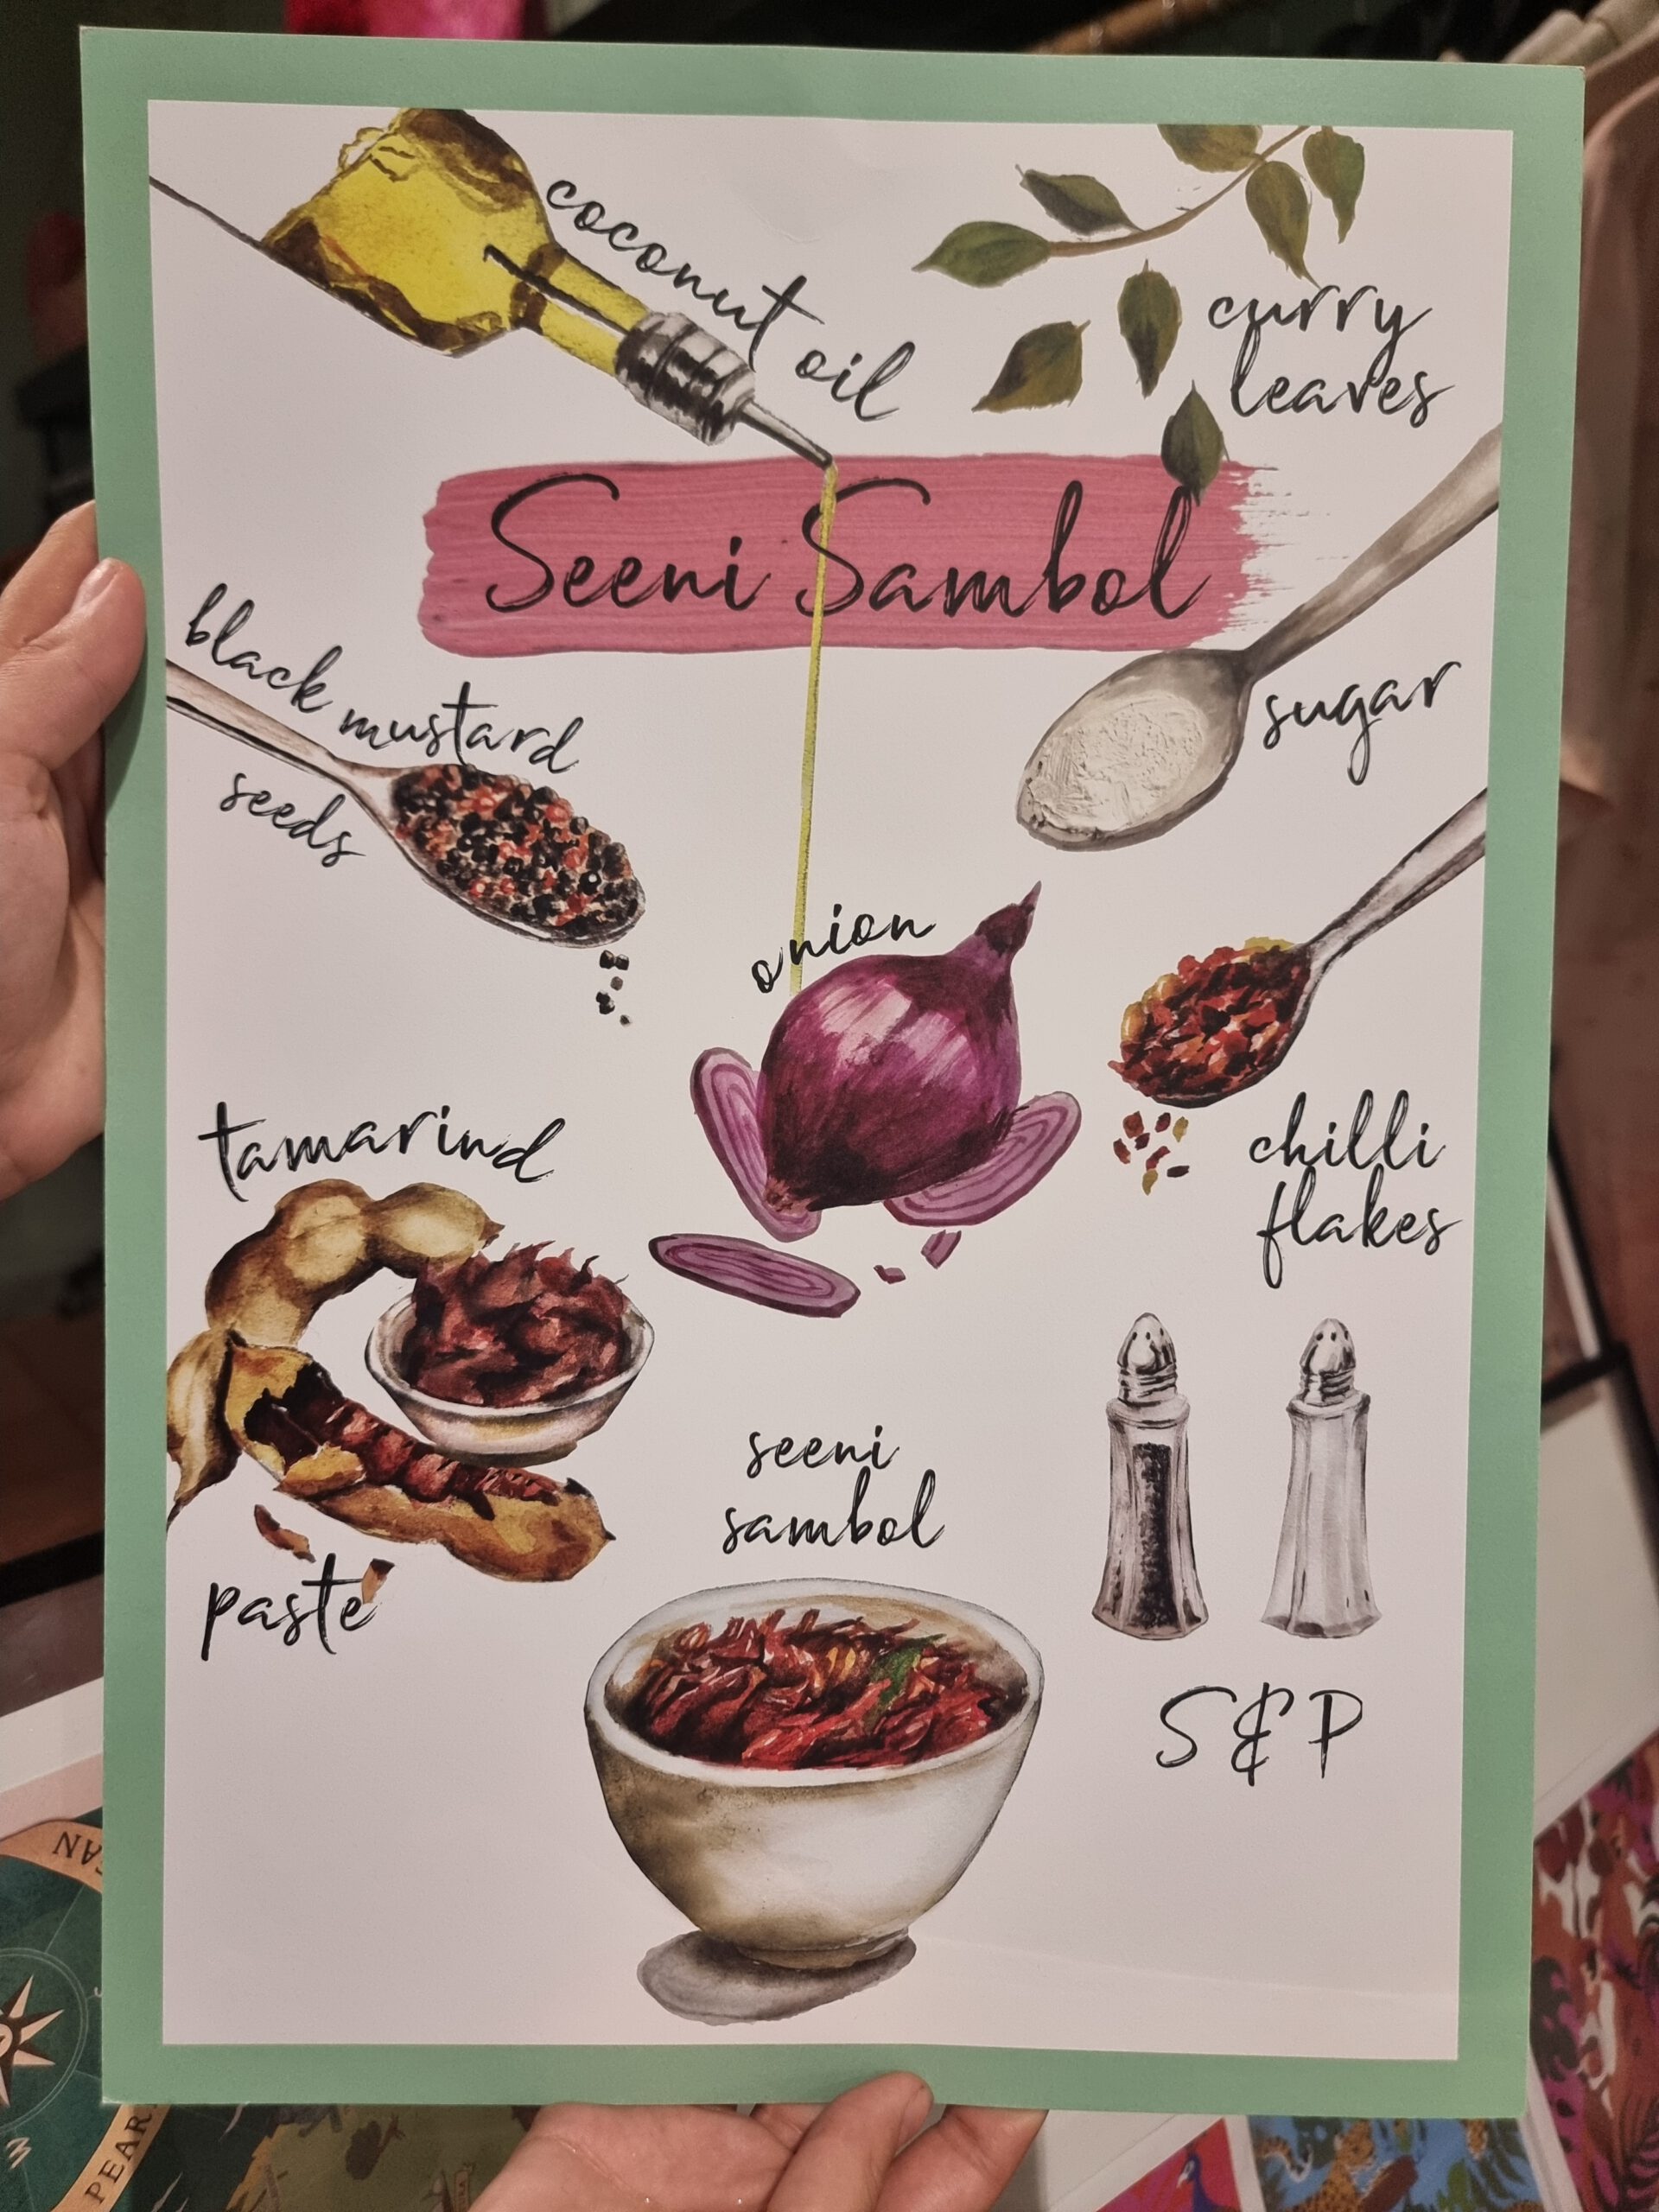 coconut oil
curry
leaves
Seeni Sambol
black mustard
seeds
sugar
onion
chilli
flakes
tamarind
paste
seeni
sambol
S & P
PEAR